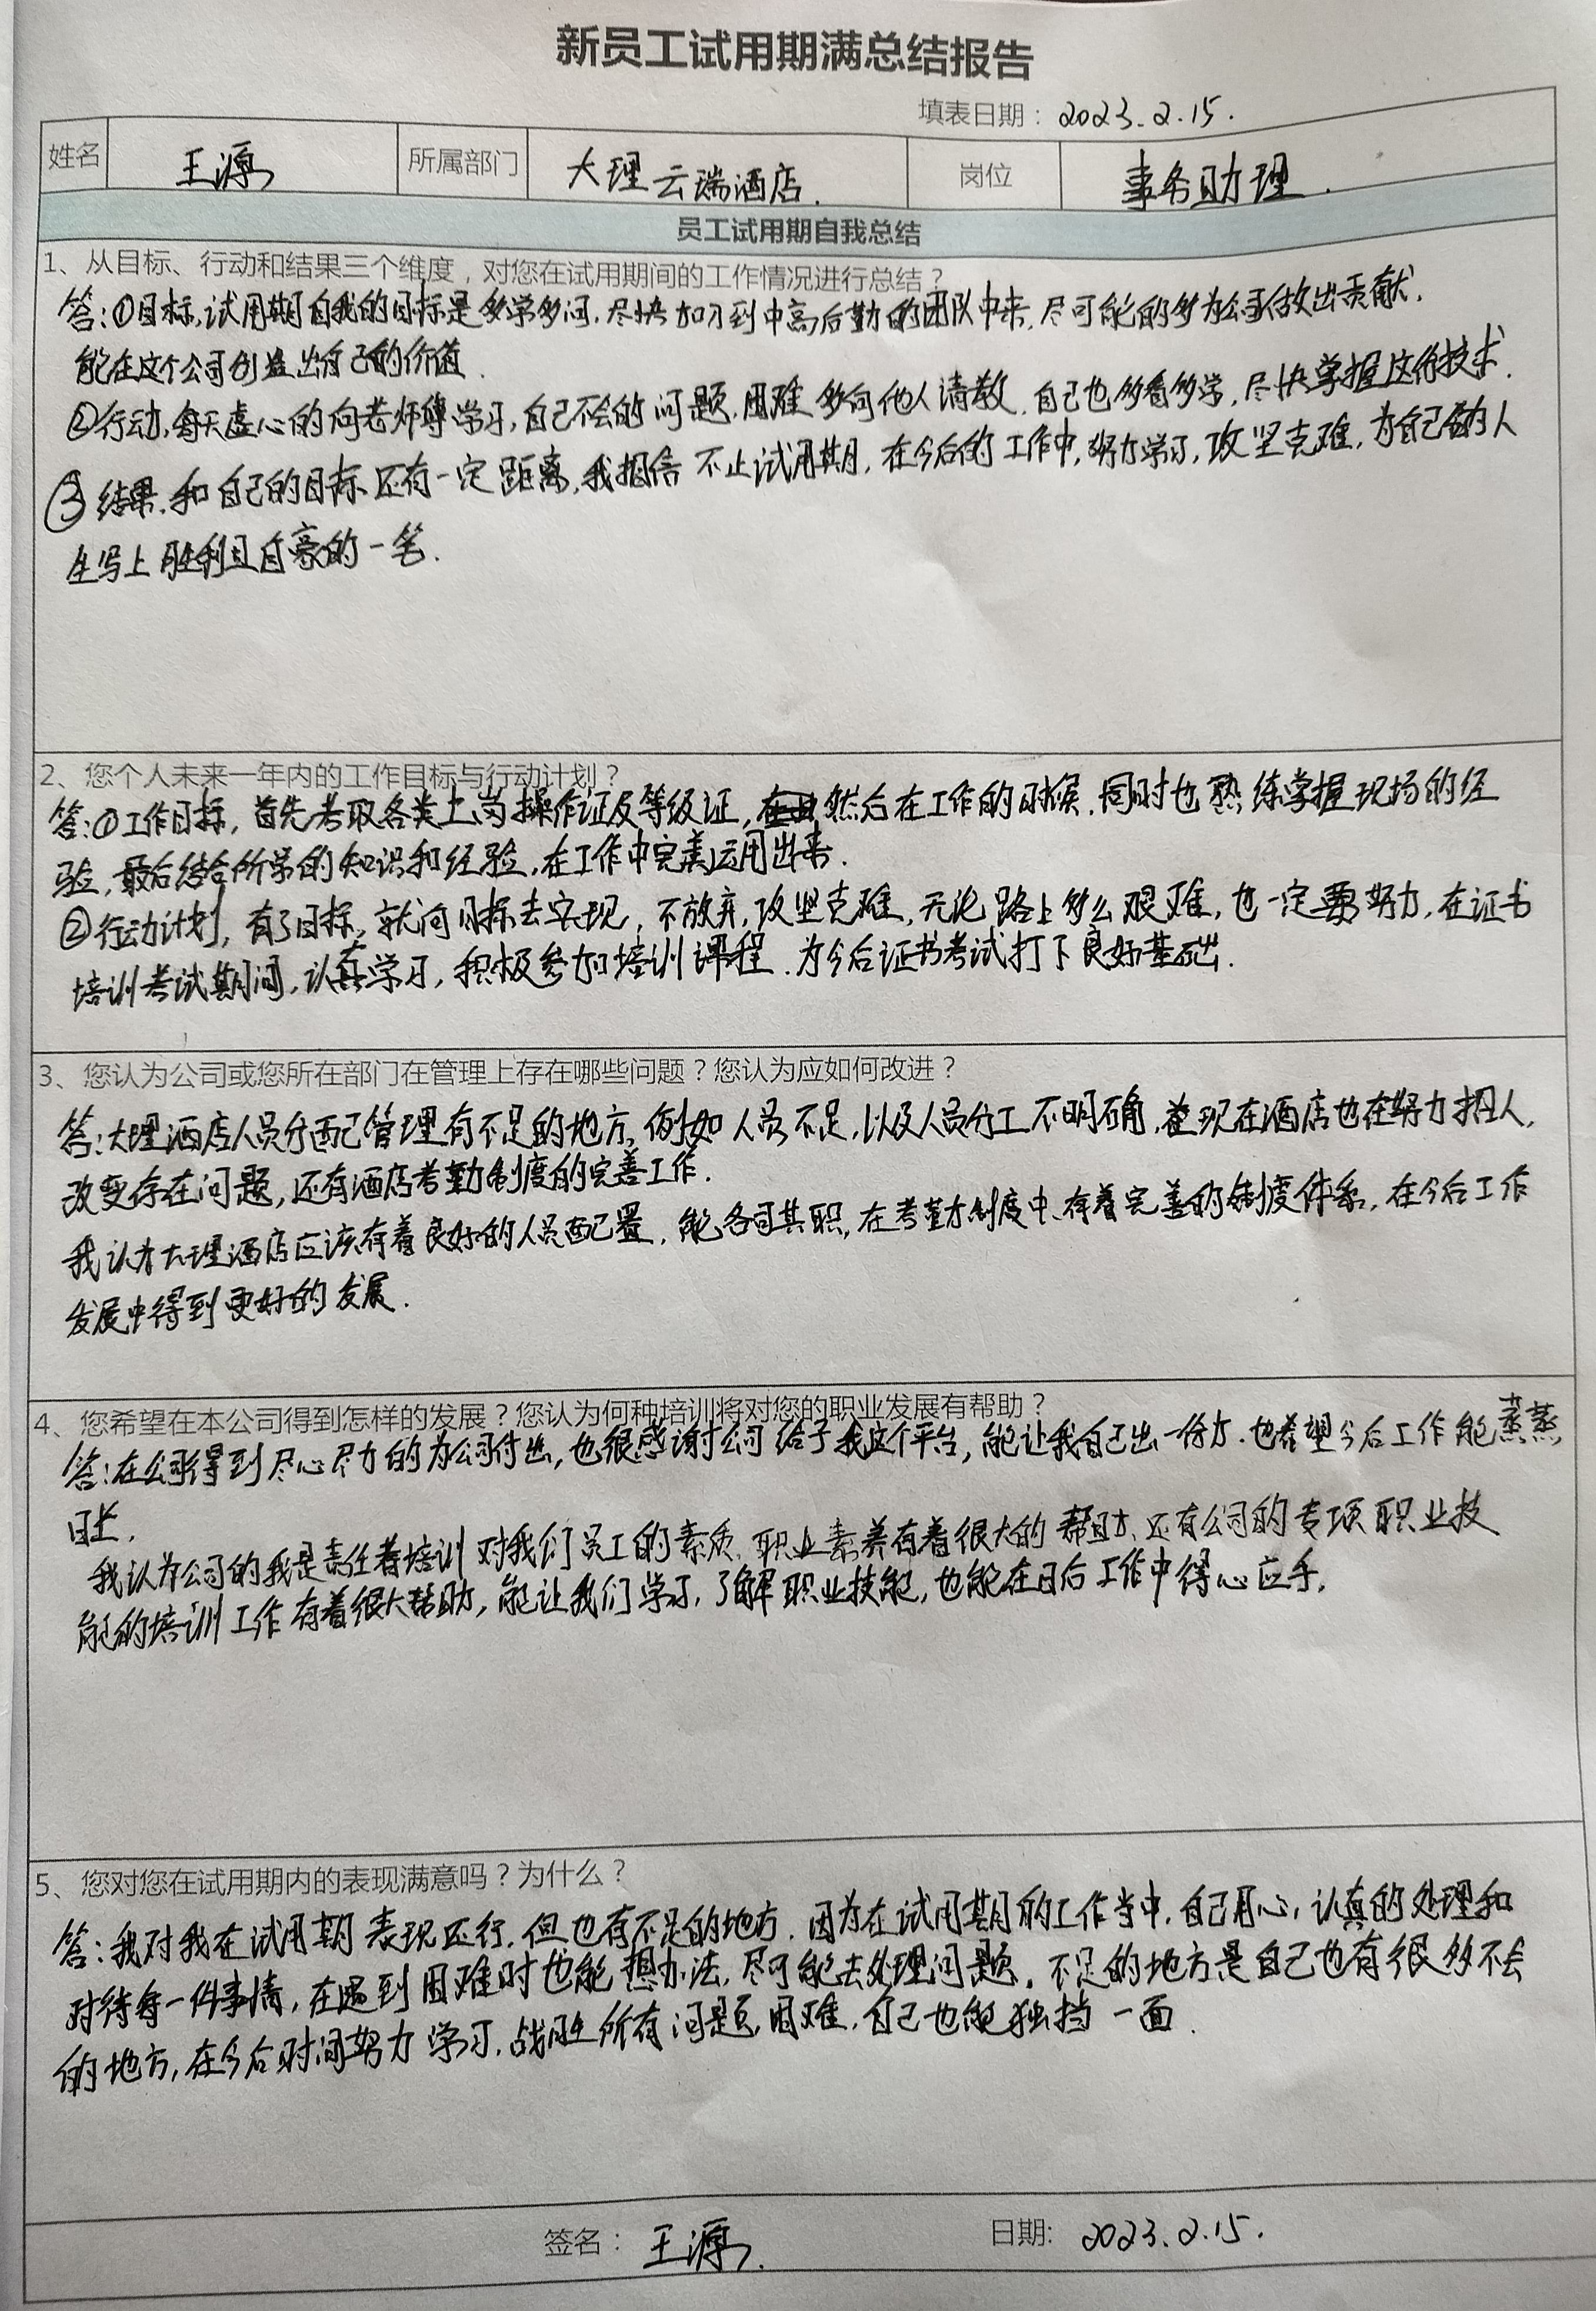 新员工试用期满总结报告
填表日期：2023.2.15.
姓名 王源 所属部门 大理云瑞酒店. 岗位 事务助理.
员工试用期自我总结
1、从目标、行动和结果三个维度，对您在试用期间的工作情况进行总结？
答:①目标,试用期自我的目标是多学多问.尽快加入到中高后勤的团队中来,尽可能的多为公司做出贡献,
能在这个公司创造出自己的价值.
②行动,每天虚心的向老师傅学习,自己不会的问题.困难多向他人请教,自己也多看多学,尽快掌握这份技术.
③结果.和自己的目标还有一定距离,我相信不止试用期,在今后的工作中,努力学习,攻坚克难,为自己的人
生写上胜利且自豪的一笔.
2、您个人未来一年内的工作目标与行动计划？
答:①工作目标,首先考取各类上岗操作证及等级证,然后在工作的时候.同时也熟练掌握现场的经
验,最后结合所学的知识和经验,在工作中完美运用出来.
②行动计划,有了目标,就向目标去实现,不放弃,攻坚克难,无论路上多么艰难,也一定要努力,在证书
培训考试期间,认真学习,积极参加培训课程.为今后证书考试打下良好基础.
3、您认为公司或您所在部门在管理上存在哪些问题？您认为应如何改进？
答:大理酒店人员分配管理有不足的地方,例如人员不足,以及人员分工不明确,现在酒店也在努力招人,
改变存在问题,还有酒店考勤制度的完善工作.
我认为大理酒店应该有着良好的人员配置,能各司其职,在考勤制度中,有着完善的制度体系,在今后工作
发展中得到更好的发展.
4、您希望在本公司得到怎样的发展？您认为何种培训将对您的职业发展有帮助？
答:在公司得到尽心尽力的为公司付出,也很感谢公司给予我这个平台,能让我自己出一份力.也希望今后工作能蒸蒸
日上.
我认为公司的我是责任者培训对我们员工的素质.职业素养有着很大的帮助.还有公司的专项职业技
能的培训工作有着很大帮助,能让我们学习,了解职业技能,也能在日后工作中得心应手.
5、您对您在试用期内的表现满意吗？为什么？
答:我对我在试用期表现还行.但也有不足的地方.因为在试用期的工作当中,自己用心,认真的处理和
对待每一件事情,在遇到困难时也能想办法,尽可能去处理问题.不足的地方是自己也有很多不会
的地方,在今后时间努力学习,战胜所有问题,困难,自己也能独挡一面.
签名：王源. 日期: 2023.2.15.